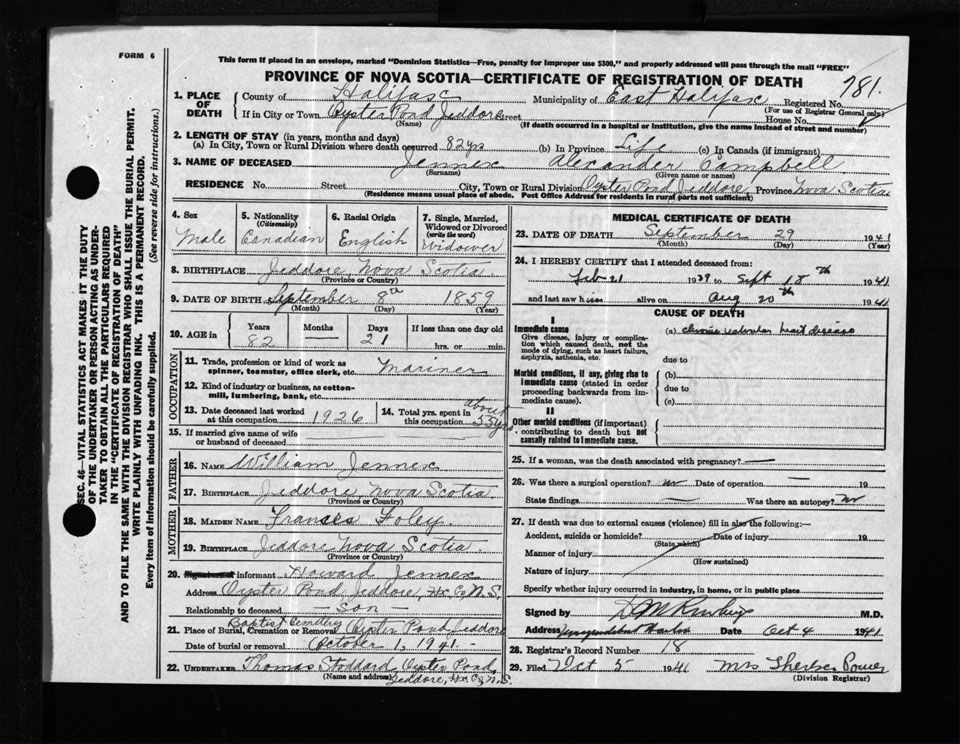 FORM 6
This form if placed in an envelope, marked "Dominion Statistics—Free, penalty for improper use $300," and properly addressed will pass through the mail "FREE"
PROVINCE OF NOVA SCOTIA—CERTIFICATE OF REGISTRATION OF DEATH
781
1. PLACE OF DEATH
County of Halifax Municipality of East Halifax Registered No.
(For use of Registrar General only)
If in City or Town Oyster Pond Jeddore Street House No.
(Name) (If death occurred in a hospital or institution, give the name instead of street and number)
2. LENGTH OF STAY (in years, months and days)
(a) In City, Town or Rural Division where death occurred 82 yrs (b) In Province Life (c) In Canada (if immigrant)
3. NAME OF DECEASED Jennex Alexander Campbell
(Surname) (Given name or names)
RESIDENCE No. Street City, Town or Rural Division Oyster Pond Jeddore, Province Nova Scotia
(Residence means usual place of abode. Post Office Address for residents in rural parts not sufficient)
4. Sex
Male
5. Nationality
(Citizenship)
Canadian
6. Racial Origin
English
7. Single, Married, Widowed or Divorced
(write the word)
Widower
8. BIRTHPLACE Jeddore Nova Scotia.
(Province or Country)
9. DATE OF BIRTH September 8th 1859
(Month) (Day) (Year)
10. AGE in Years Months Days If less than one day old
82 — 21 hrs. or min.
OCCUPATION
11. Trade, profession or kind of work as spinner, teamster, office clerk, etc. Mariner
12. Kind of industry or business, as cotton-mill, lumbering, bank, etc.
13. Date deceased last worked at this occupation 1926
14. Total yrs. spent in this occupation about 55 yrs.
15. If married give name of wife or husband of deceased
FATHER
16. NAME William Jennex
17. BIRTHPLACE Jeddore Nova Scotia
(Province or Country)
MOTHER
18. MAIDEN NAME Frances Foley.
19. BIRTHPLACE Jeddore Nova Scotia.
(Province or Country)
20. informant Howard Jennex
Address Oyster Pond Jeddore, Hx. Co N.S.
Relationship to deceased — son —
21. Place of Burial, Cremation or Removal Baptist Cemetery Oyster Pond Jeddore
Date of burial or removal October 1, 1941. -
22. UNDERTAKER Thomas Stoddard Oyster Pond,
(Name and address) Jeddore, Hx. Co, N.S.
MEDICAL CERTIFICATE OF DEATH
23. DATE OF DEATH September 29 1941
(Month) (Day) (Year)
24. I HEREBY CERTIFY that I attended deceased from:
Feb 21 1939 to Sept 18th 1941
and last saw him alive on Aug 20th 1941
CAUSE OF DEATH
I
Immediate cause
Give disease, injury or complication which caused death, not the mode of dying, such as heart failure, asphyxia, asthenia, etc.
(a) chronic valvular heart disease
due to
Morbid conditions, if any, giving rise to immediate cause (stated in order proceeding backwards from immediate cause).
(b)
due to
(c)
II
Other morbid conditions (if important) contributing to death but not causally related to immediate cause.
25. If a woman, was the death associated with pregnancy? —
26. Was there a surgical operation? no Date of operation — 19
State findings — Was there an autopsy? no
27. If death was due to external causes (violence) fill in also the following:—
Accident, suicide or homicide? Date of injury 19
(State which)
Manner of injury
(How sustained)
Nature of injury
Specify whether injury occurred in industry, in home, or in public place
Signed by M.D.
Address Date Oct 4 1941
28. Registrar's Record Number 18
29. Filed Oct 5 1941 Mrs Power
(Division Registrar)
SEC. 46—VITAL STATISTICS ACT MAKES IT THE DUTY
OF THE UNDERTAKER OR PERSON ACTING AS UNDER-
TAKER TO OBTAIN ALL THE PARTICULARS REQUIRED
IN THE "CERTIFICATE OF REGISTRATION OF DEATH"
AND TO FILE THE SAME WITH THE DIVISION REGISTRAR WHO SHALL ISSUE THE BURIAL PERMIT.
WRITE PLAINLY WITH UNFADING INK. THIS IS A PERMANENT RECORD.
Every item of information should be carefully supplied. (See reverse side for instructions.)